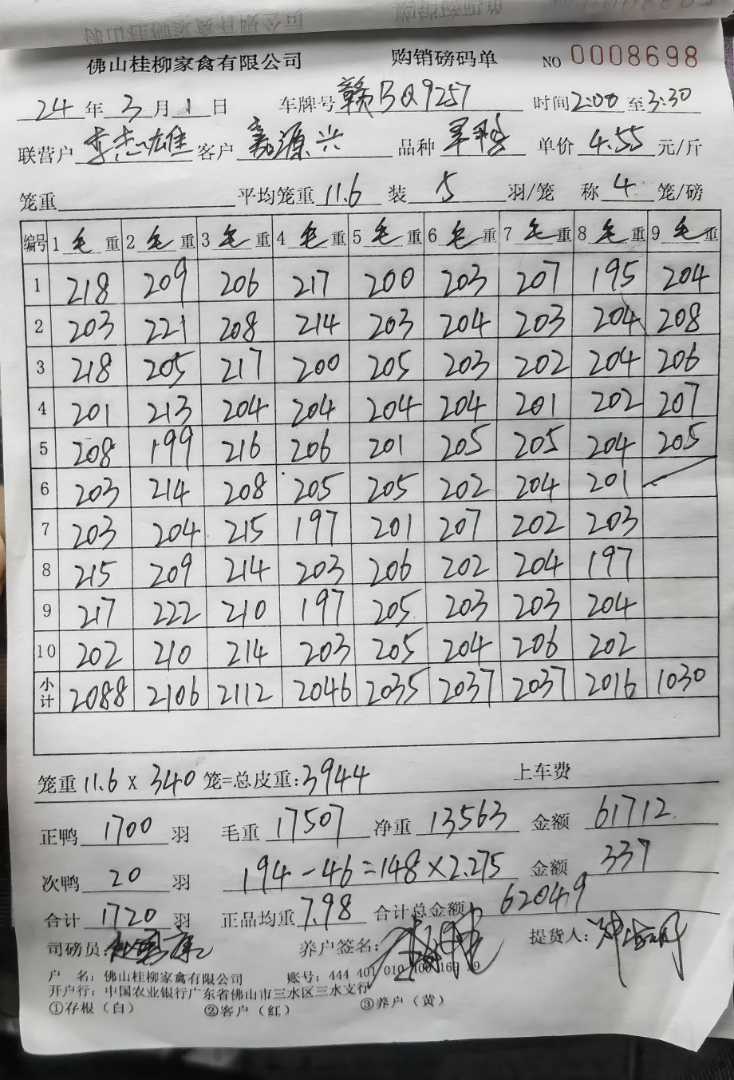 佛山桂柳家禽有限公司 购销磅码单 NO 0008698
24年3月1日 车牌号 赣BQ9257 时间2:00至3:30
联营户 李志雄 客户 嘉源兴 品种 单价 4.55 元/斤
笼重 平均笼重 11.6 装 5 羽/笼 称 4 笼/磅
编号 1 毛重 2 毛重 3 毛重 4 毛重 5 毛重 6 毛重 7 毛重 8 毛重 9 毛重
1 218 209 206 217 200 203 207 195 204
2 203 221 208 214 203 204 203 204 208
3 218 205 217 200 205 203 202 204 206
4 201 213 204 204 204 204 201 202 207
5 208 199 216 206 201 205 205 204 205
6 203 214 208 205 205 202 204 201
7 203 204 215 197 201 207 202 203
8 215 209 214 203 206 202 204 197
9 217 222 210 197 205 203 203 204
10 202 210 214 203 205 204 206 202
小计 2088 2106 2112 2046 2035 2037 2037 2016 1030
笼重 11.6 x 340 笼=总皮重:3944 上车费
正鸭 1700 羽 毛重 17507 净重 13563 金额 61712
次鸭 20 羽 194-46=148×2.275 金额 337
合计 1720 羽 正品均重 7.98 合计总金额 62049
司磅员 养户签名: 提货人:
户 名: 佛山桂柳家禽有限公司 账号: 444 401 010
开户行: 中国农业银行广东省佛山市三水区三水支行
①存根（白） ②客户（红） ③养户（黄）